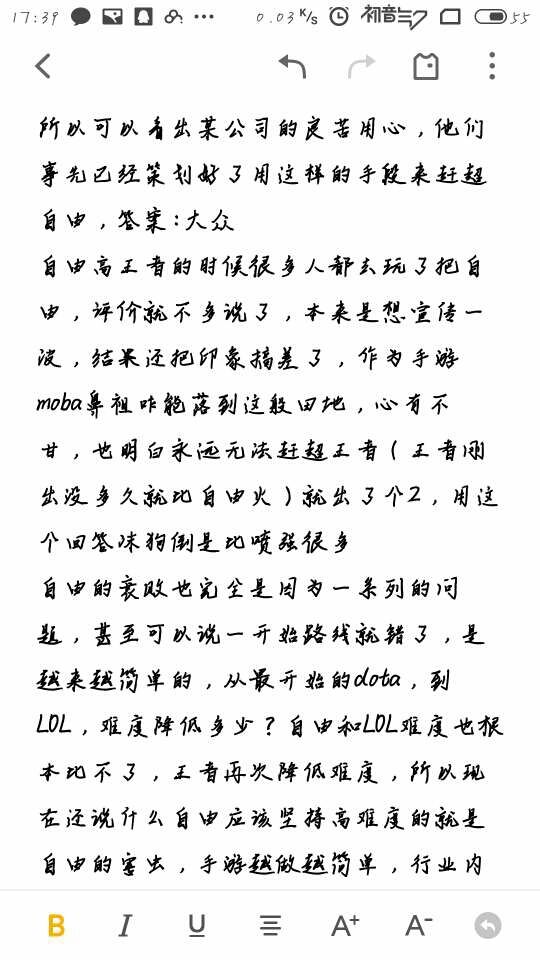 17:39 0.03K/s 初音 55
所以可以看出某公司的良苦用心，他们
事先已经策划好了用这样的手段来赶超
自由，答案：大众
自由高王者的时候很多人都去玩了把自
由，评价就不多说了，本来是想宣传一
波，结果还把印象搞差了，作为手游
moba鼻祖咋能落到这般田地，心有不
甘，也明白永远无法赶超王者（王者刚
出没多久就比自由火）就出了个2，用这
个回答沫狗倒是比喷强很多
自由的衰败也完全是因为一系列的问
题，甚至可以说一开始路线就错了，是
越来越简单的，从最开始的dota，到
LOL，难度降低多少？自由和LOL难度也根
本比不了，王者再次降低难度，所以现
在还说什么自由应该坚持高难度的就是
自由的害虫，手游越做越简单，行业内
B I U A+ A-